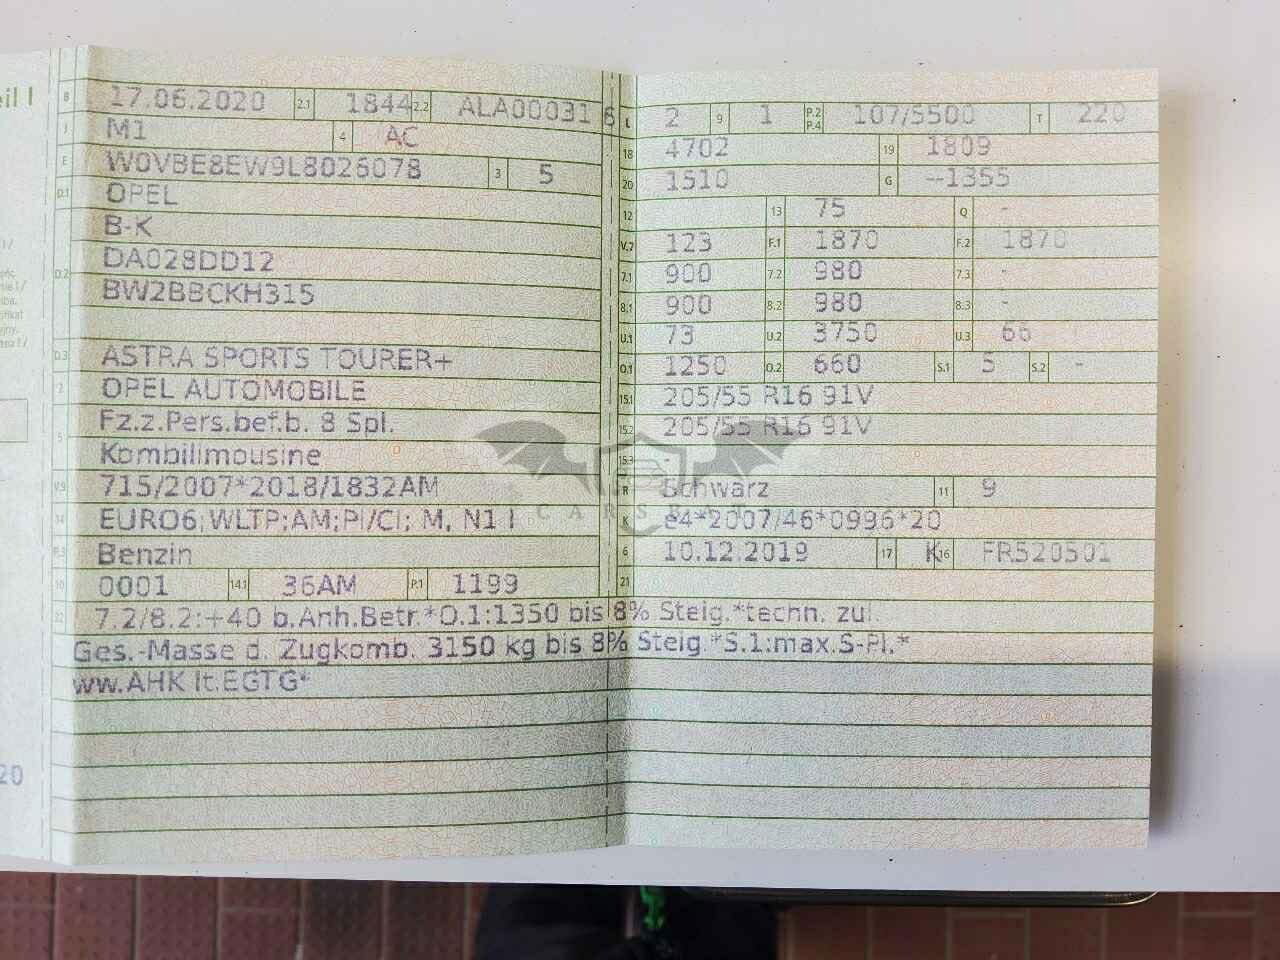 eil I
B 17.06.2020 2.1 1844 2.2 ALA00031 6
J M1 4 AC
E W0VBE8EW9L8026078 3 5
D.1 OPEL
B-K
D.2 DA028DD12
BW2BBCKH315
D.3 ASTRA SPORTS TOURER+
2 OPEL AUTOMOBILE
5 Fz.z.Pers.bef.b. 8 Spl.
Kombilimousine
V.9 715/2007*2018/1832AM
14 EURO6;WLTP;AM;PI/CI; M, N1 I
P.3 Benzin
10 0001 14.1 36AM P.1 1199
L 2 9 1 P.2 P.4 107/5500 T 220
18 4702 19 1809
20 1510 G --1355
12 13 75 Q -
V.7 123 F.1 1870 F.2 1870
7.1 900 7.2 980 7.3 -
8.1 900 8.2 980 8.3 -
U.1 73 U.2 3750 U.3 66
O.1 1250 O.2 660 S.1 5 S.2 -
15.1 205/55 R16 91V
15.2 205/55 R16 91V
15.3 -
R Schwarz 11 9
K e4*2007/46*0996*20
6 10.12.2019 17 K 16 FR520501
21
22 7.2/8.2:+40 b.Anh.Betr.*O.1:1350 bis 8% Steig.*techn. zul.
Ges.-Masse d. Zugkomb. 3150 kg bis 8% Steig.*S.1:max.S-Pl.*
ww.AHK lt.EGTG*
20